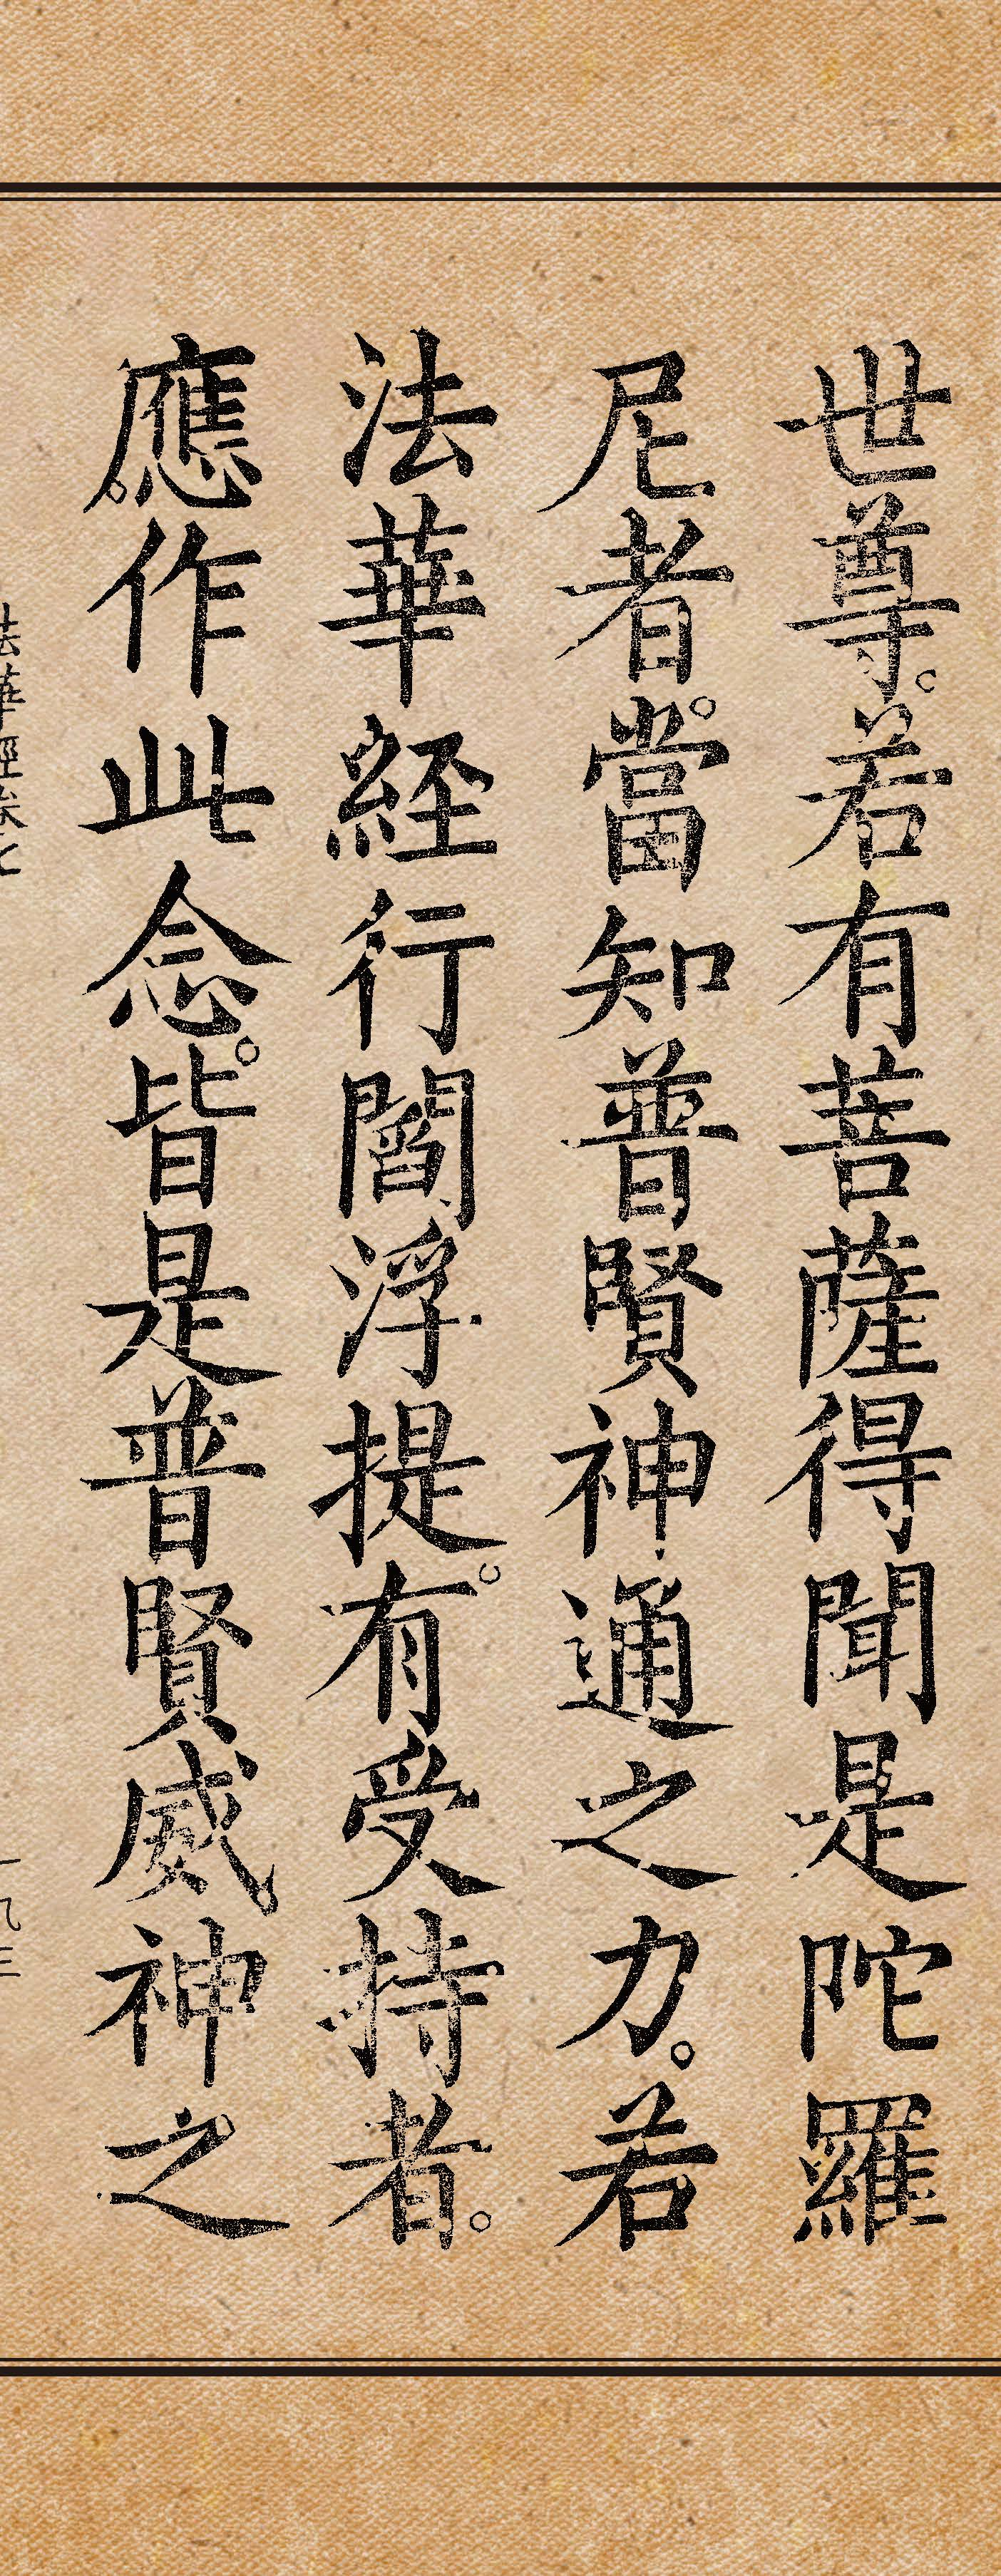 世尊。若有菩薩得聞是陀羅
尼者。當知普賢神通之力。若
法華經行閻浮提。有受持者。
應作此念。皆是普賢威神之
法華經卷七
一九三